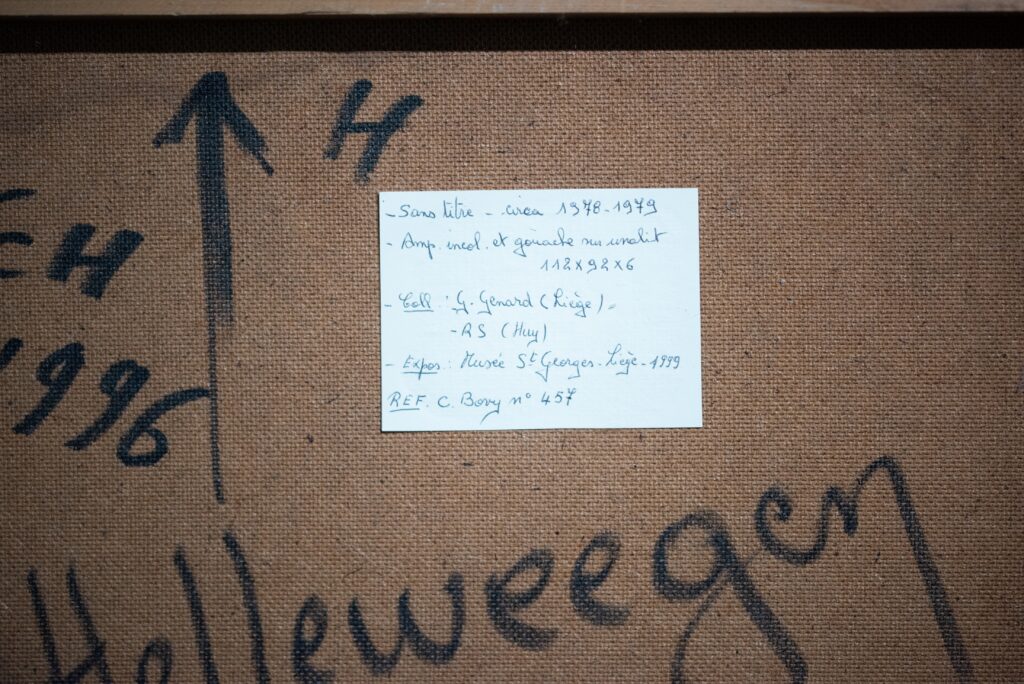 H
CH
1996
- Sans titre - circa 1978-1979
- Amp. incol. et gouache sur unalit
112x92x6
- Coll : G. Genard (Liège) -
- RS (Huy)
- Expos. : Musée St Georges - Liège - 1999
REF. C. Bovy n° 457
Helleweegen